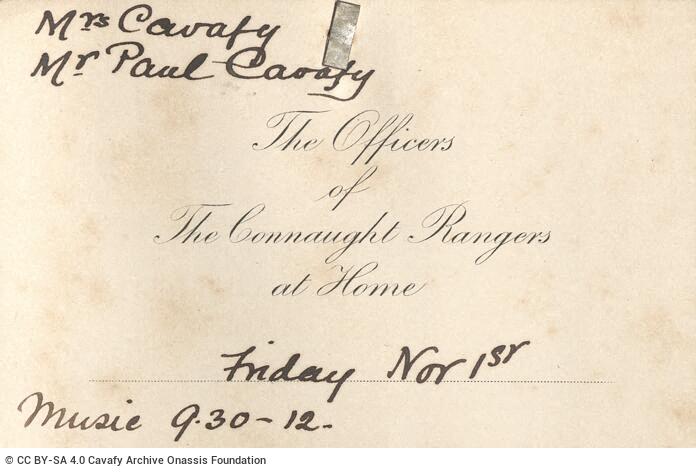 Mrs Cavafy
Mr Paul Cavafy
The Officers
of
The Connaught Rangers
at Home
Friday Nov 1st
Music 9.30-12.
© CC BY-SA 4.0 Cavafy Archive Onassis Foundation